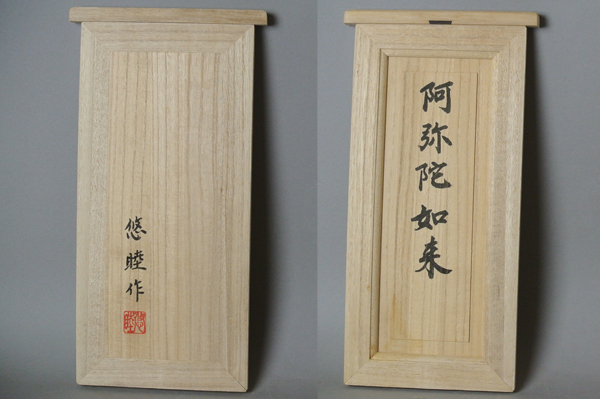 悠睦作
悠睦
阿弥陀如来